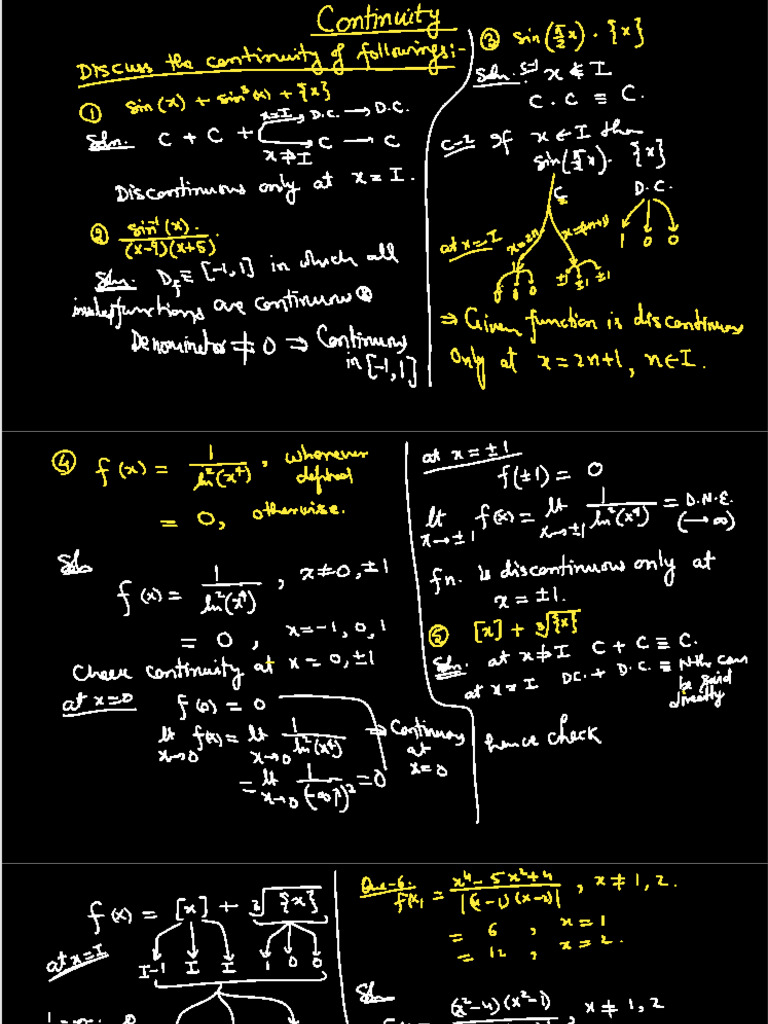 Continuity
Discuss the continuity of followings:-
① sin(x) + sin³(x) + {x}
Soln. C + C + x=I → D.C. → D.C.
x∉I → C → C
Discontinuous only at x = I.
② sin⁻¹(x). / (x-9)(x+5).
Soln. Df ≡ [-1,1] in which all
involved functions are continuous
Denominator ≠ 0 ⇒ Continuous
in [-1,1]
③ sin(π/2 x) · {x}
Soln. C-1 x ∉ I
C . C ≡ C.
C-2 If x ∈ I then
sin(π/2 x). {x}
C D.C.
at x=I x=2n x=2n+1 1 0 0
0 0 0 ±1 ±1 ±1
⇒ Given function is discontinuous
Only at x = 2n+1, n∈I.
④ f(x) = 1/ln²(x⁴), whenever
defined
= 0, otherwise.
Soln
f(x) = 1/ln²(x⁴), x≠0,±1
= 0, x=-1,0,1
Check continuity at x = 0,±1
at x=0 f(0) = 0
lt x→0 f(x) = lt x→0 1/ln²(x⁴) ⇒ Continuous
at
x=0
= lt x→0 1/(-∞)² = 0
at x=±1
f(±1) = 0
lt x→±1 f(x) = lt x→±1 1/ln²(x⁴) = D.N.E.
(→∞)
fn. is discontinuous only at
x = ±1.
⑤ [x] + ∛{x}
Soln. at x∉I C + C ≡ C.
at x=I DC. + D.C. ≡ Nth can
be said
directly
hence check
f(x) = [x] + ∛{x}
at x=I
I-1 I I 1 0 0
Que-6. f(x) = x⁴-5x²+4 / |(x-1)(x-2)|, x≠1,2.
= 6, x=1
= 12, x=2.
Soln
(x²-4)(x²-1), x≠1,2